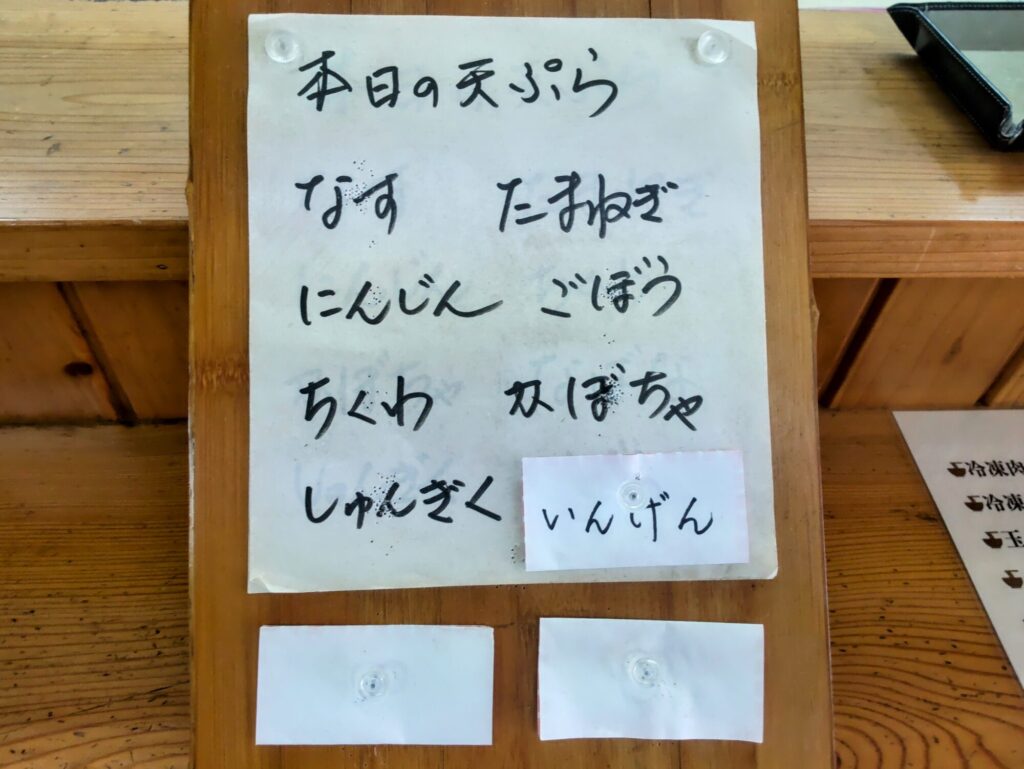 本日の天ぷら
なす たまねぎ
にんじん ごぼう
ちくわ かぼちゃ
しゅんぎく いんげん
冷凍肉
冷凍
玉